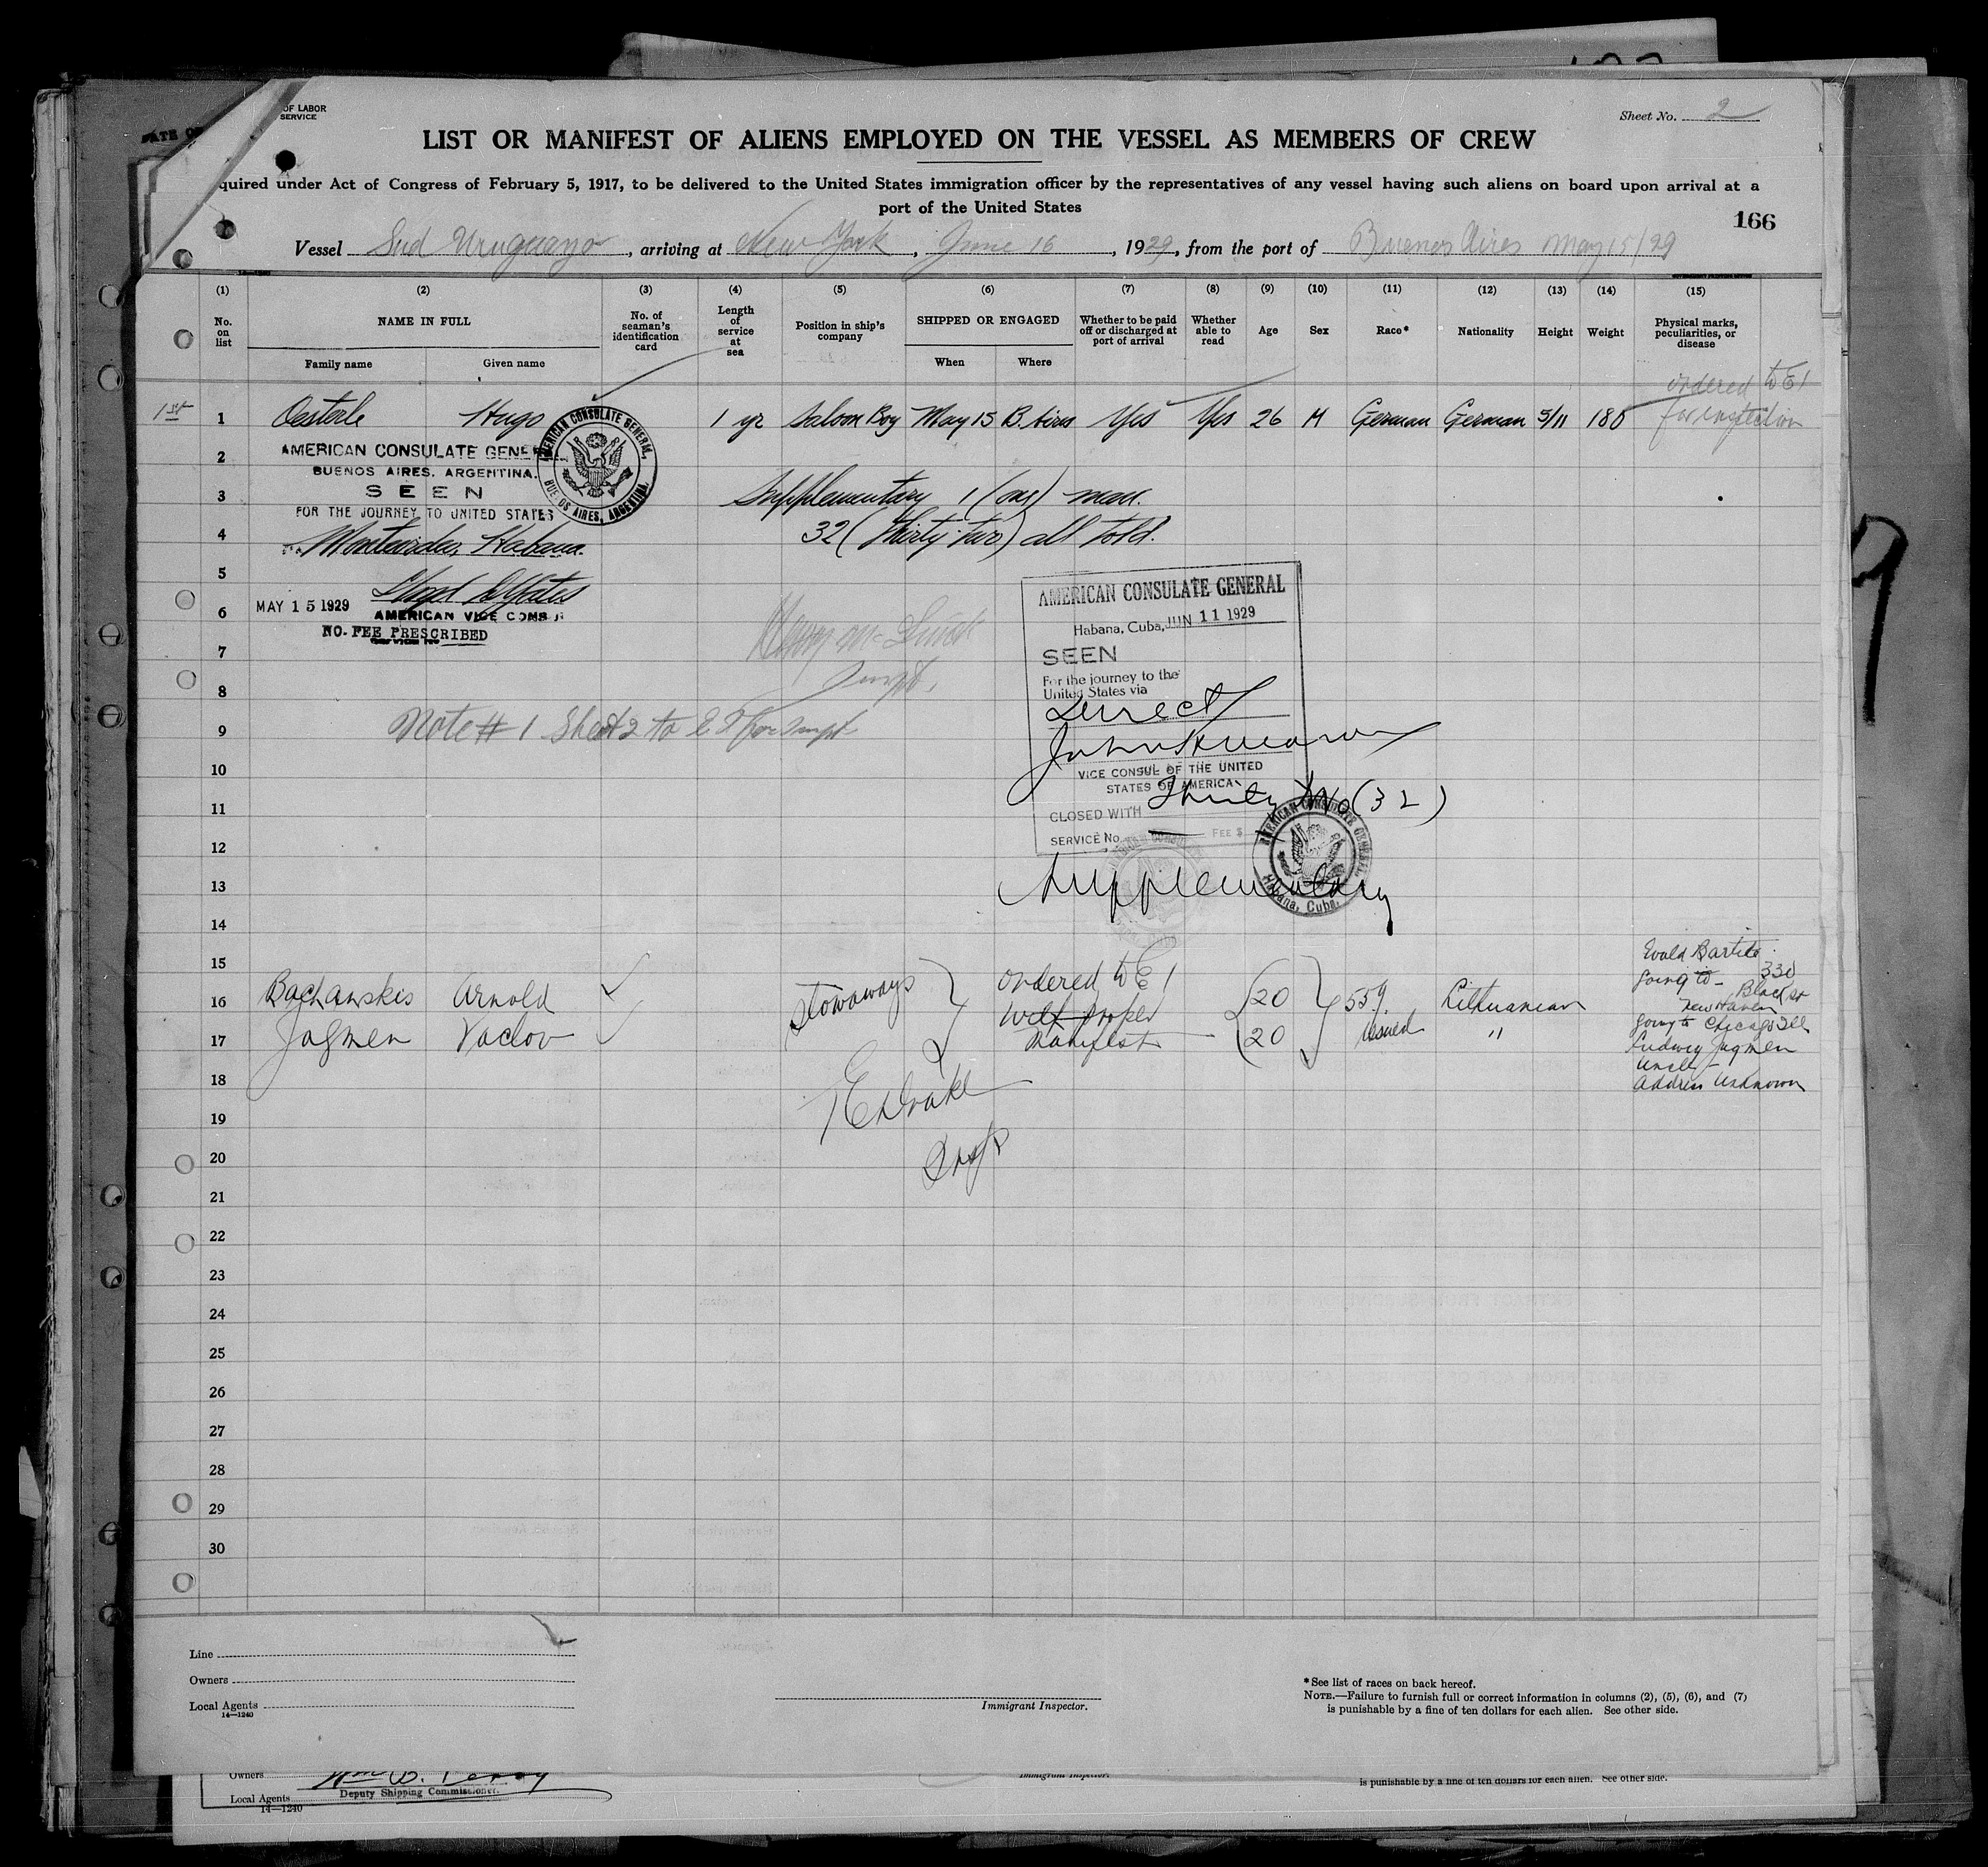 OF LABOR
SERVICE
Sheet No. 2
LIST OR MANIFEST OF ALIENS EMPLOYED ON THE VESSEL AS MEMBERS OF CREW
quired under Act of Congress of February 5, 1917, to be delivered to the United States immigration officer by the representatives of any vessel having such aliens on board upon arrival at a
port of the United States
166
Vessel Sud Uruguayo, arriving at New York, June 16, 1929, from the port of Buenos Aires May 15/29
(1) (2) (3) (4) (5) (6) (7) (8) (9) (10) (11) (12) (13) (14) (15)
No. on list
NAME IN FULL
Family name Given name
No. of seaman's identification card
Length of service at sea
Position in ship's company
SHIPPED OR ENGAGED
When Where
Whether to be paid off or discharged at port of arrival
Whether able to read
Age
Sex
Race*
Nationality
Height
Weight
Physical marks, peculiarities, or disease
ordered to EI
1st 1 Oesterle Hugo 1 yr Saloon Boy May 15 B. Aires Yes Yes 26 M German German 5/11 180 for inspection
AMERICAN CONSULATE GENERAL, BUENOS AIRES, ARGENTINA.
2 AMERICAN CONSULATE GENE
BUENOS AIRES, ARGENTINA.
3 SEEN Supplementary 1 (one) man.
FOR THE JOURNEY TO UNITED STATES
4 Montevideo, Habana. 32 (thirty-two) all told.
5
AMERICAN CONSULATE GENERAL
6 MAY 15 1929
AMERICAN VICE CONSUL
Habana, Cuba, JUN 11 1929
NO FEE PRESCRIBED
7 SEEN
For the journey to the
United States via
8 Direct
9 Note # 1 Sheet 2 to E I for Inspt
10 VICE CONSUL OF THE UNITED
STATES OF AMERICA
11 CLOSED WITH Thirty two (32)
SERVICE No. FEE $
12
AMERICAN CONSULATE GENERAL Habana, Cuba.
13 Supplementary
14
15 Ewald
16 Bachanskis Arnold Stowaways ordered to EI with proper 20 559 Lithuanian going to - 330
New Haven
17 Jagmen Vaclov manifest 20 issued " going to Chicago Ill
Ludwig Jagmen
Uncle -
18 Address Unknown
19
20
21
22
23
24
25
26
27
28
29
30
Line
Owners
Local Agents
14—1240
Immigrant Inspector.
*See list of races on back hereof.
NOTE.—Failure to furnish full or correct information in columns (2), (5), (6), and (7)
is punishable by a fine of ten dollars for each alien. See other side.
Owners
Local Agents
14—1240
Deputy Shipping Commissioner.
Immigrant Inspector.
is punishable by a fine of ten dollars for each alien. See other side.